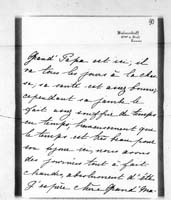 Grand Papa est ici, il
va tous les jours à la chas
se, sa santé est assez bonne,
cependant sa jambe le
fait assez souffrir de temps
en temps, heureusement que
le temps est très beau pour
son séjour ici, nous avons
des journées tout à fait
chaudes, absolument d'été.
J'espère chère Grand Ma-